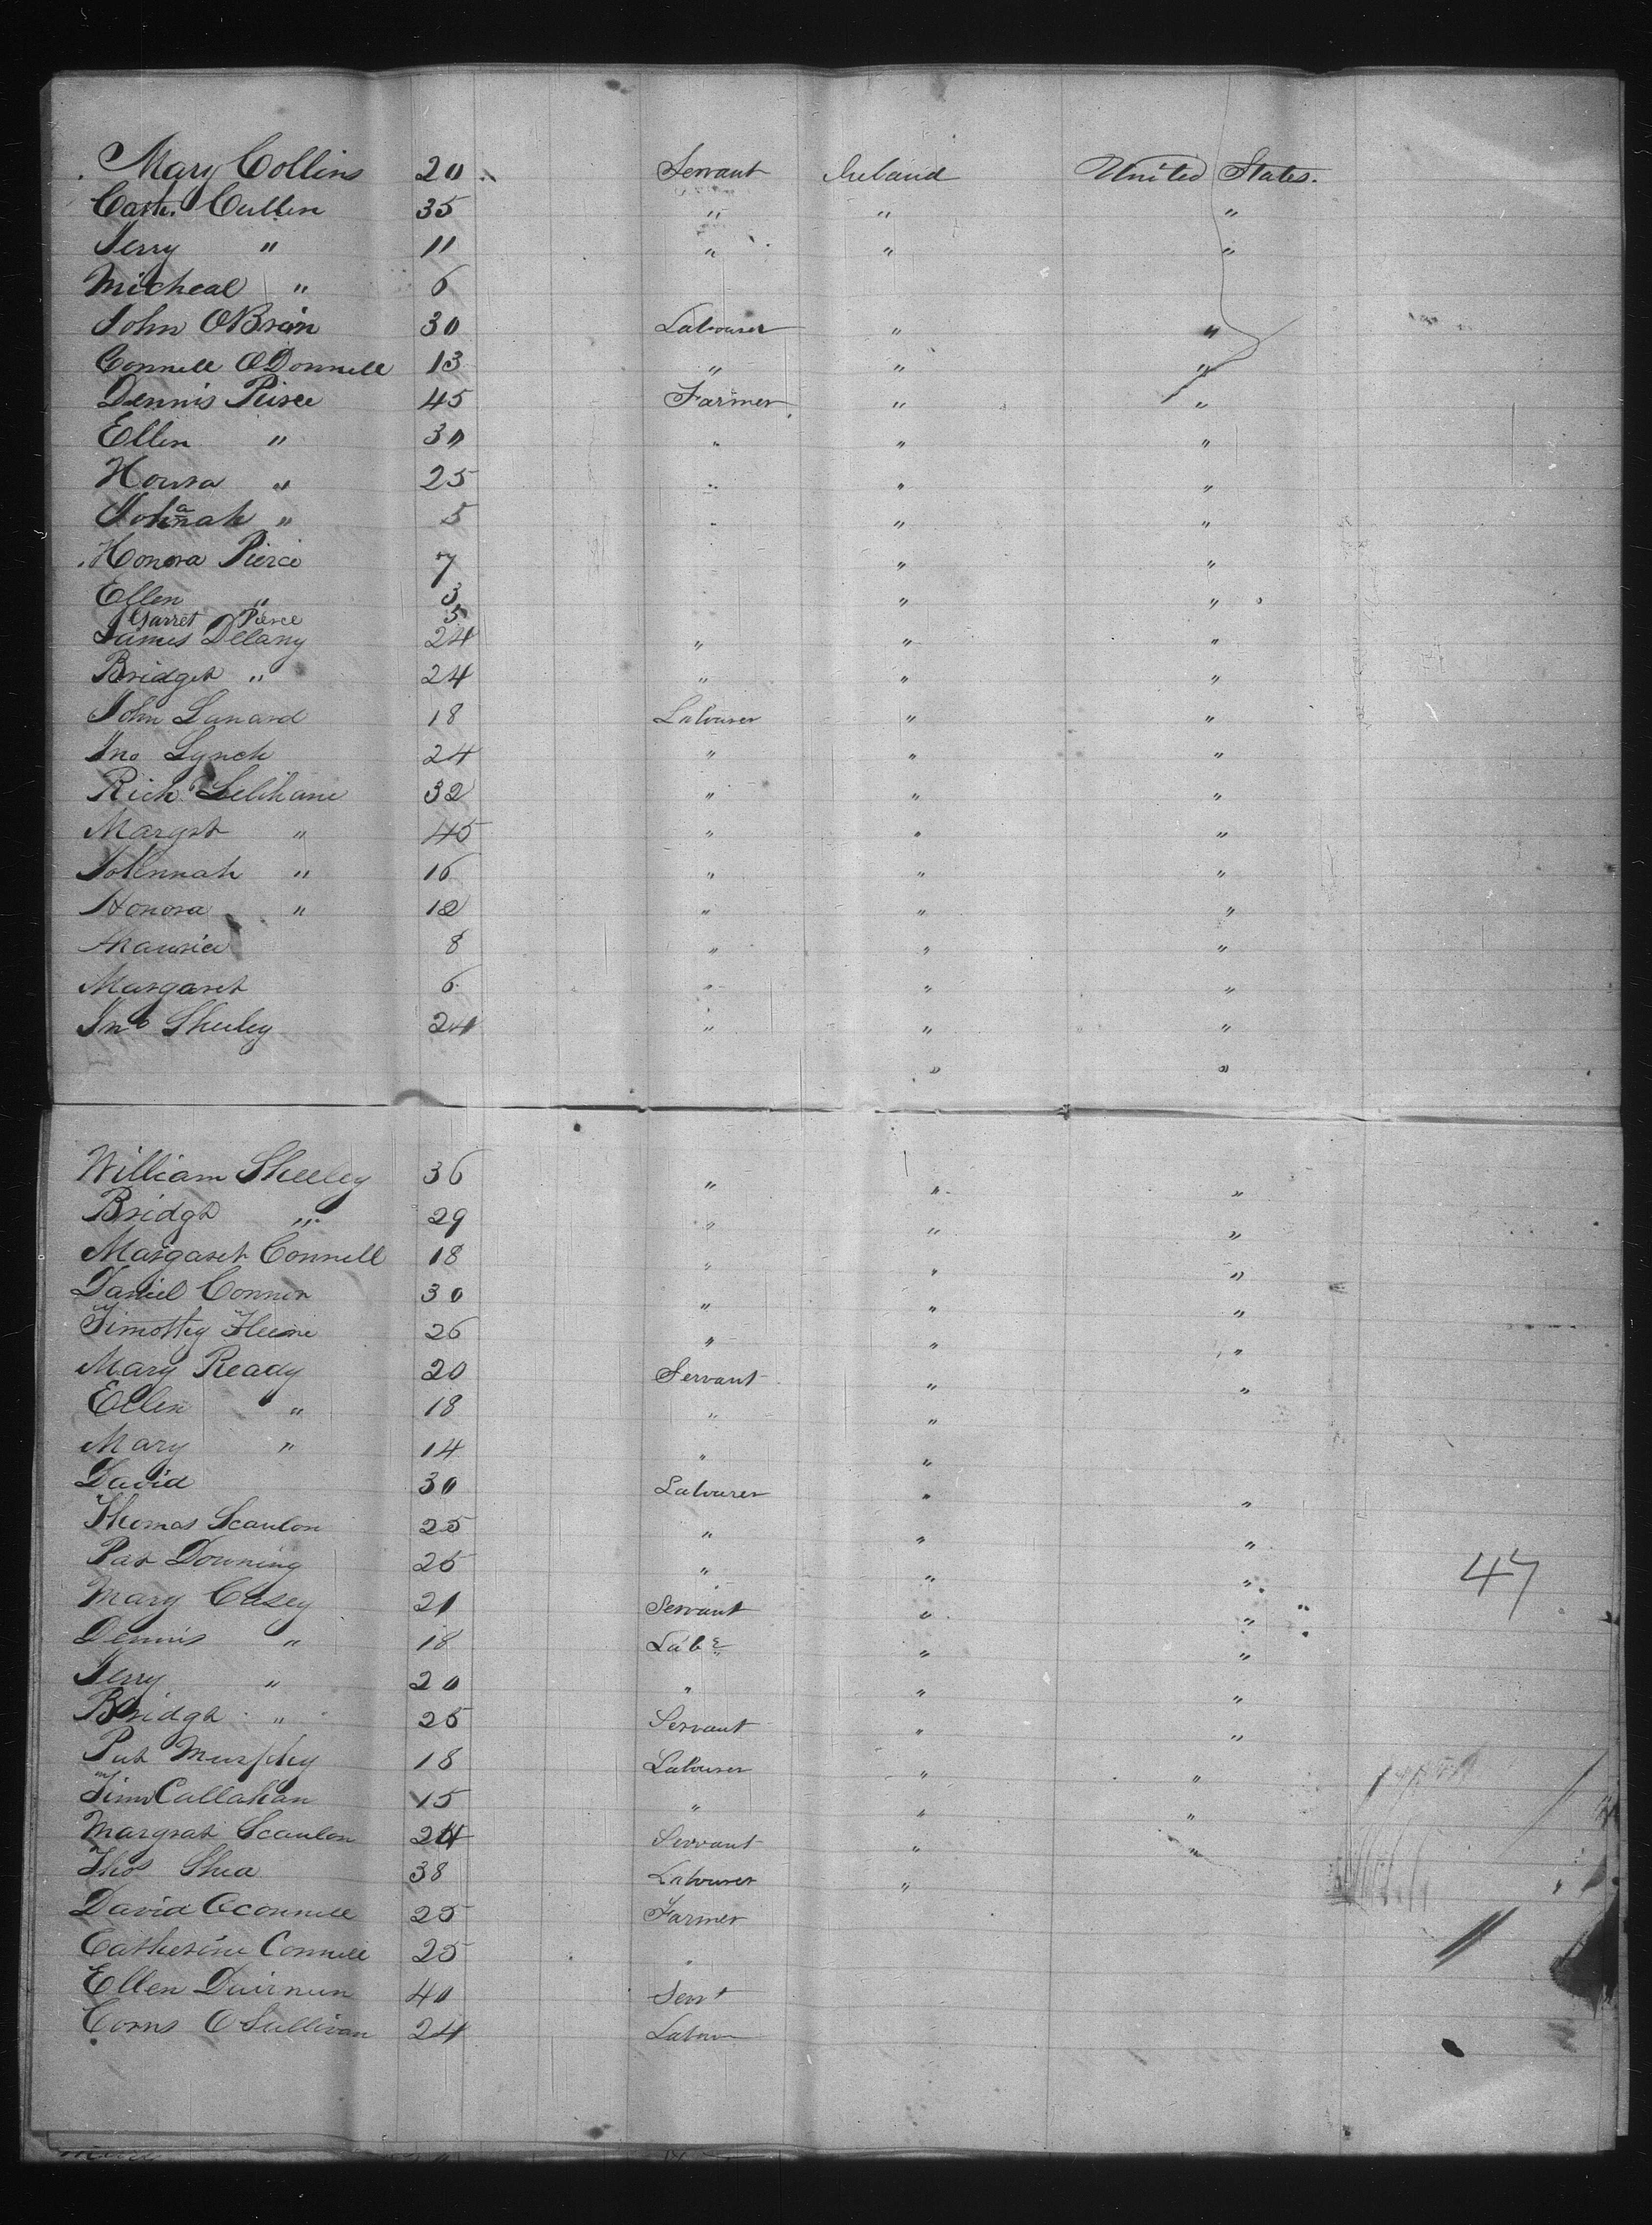 Mary Collins 20 Servant Ireland United States.
Cath. Cullin 35 " " "
Jerry " 11 " " "
Micheal " 6
John OBrien 30 Labourer " "
Connell ODonnell 13 " " "
Dennis Peirce 45 Farmer " "
Ellen " 30 " " "
Honra " 25 " " "
Johanah " 5 " " "
Honora Pierce 7 " "
Ellen " 3 " "
Garret Pierce 5
James Delany 24 " " "
Bridget " 24 " " "
John Lunard 18 Labourer " "
Jno Lynch 24 " " "
Rich. Lelihane 32 " " "
Margrt " 45 " " "
Johnnah " 16 " " "
Honora " 12 " " "
Maurice 8 " " "
Margaret 6 " " "
Jno Sheeley 24 " " "
" "
William Sheeley 36 " " "
Bridgt " 29 " " "
Margaret Connell 18 " " "
Daniel Connor 30 " " "
Timothy 26 " " "
Mary Ready 20 Servant " "
Ellen " 18 " "
Mary " 14 " "
David 30 Labourer " "
Thomas Scanlon 25 " " "
Pat Downing 25 " " " 47
Mary Casey 21 Servant " "
Dennis " 18 Labr " "
Jerry " 20 " " "
Bridgt " 25 Servant " "
Pat Murphy 18 Labourer " "
Tim Callahan 15 " " "
Margrat Scanlon 24 Servant " "
Thos Shea 38 Labourer "
David Oconnell 25 Farmer
Catherine Connell 25 "
Ellen 40 Servt
Corns OSullivan 24 Labour